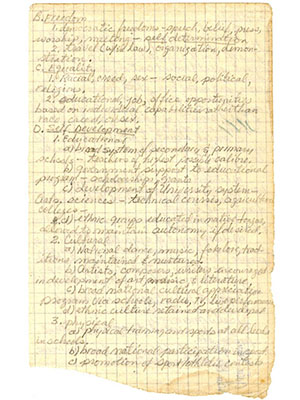 B. Freedom
1. Democratic freedoms - speech, belief, press,
worship, meeting - self determination.
2. travel (w/fed law), organization, demon-
stration.
C. Equality
1. Racial, creed, sex - social, political,
religions.
2. educational, job, office opportunities
based on individual capabilities rather than
race, creed, or sex.
D. Self Development
1. Educational
a) broad system of secondary & primary
schools - teachers of highest possible calibre.
b) government support to educational
program - scholarships, grants
c) development of University system -
(arts, sciences) - technical courses, agriculture
d) ethnic groups educated in native tongue,
allowed to maintain autonomy if desired.
2. Cultural
a) National dance, music, folklore, trad-
itions maintained & nurtured.
b) Artists, composers, writers encouraged
in development of art and music & literature.
c) broad national cultural appreciation
program via schools, radio, TV, live performances
d) ethnic culture retained and
3. physical
a) physical training and sports at all levels
in schools.
b) broad national participation in sport
c) promotion of sport athletic contests